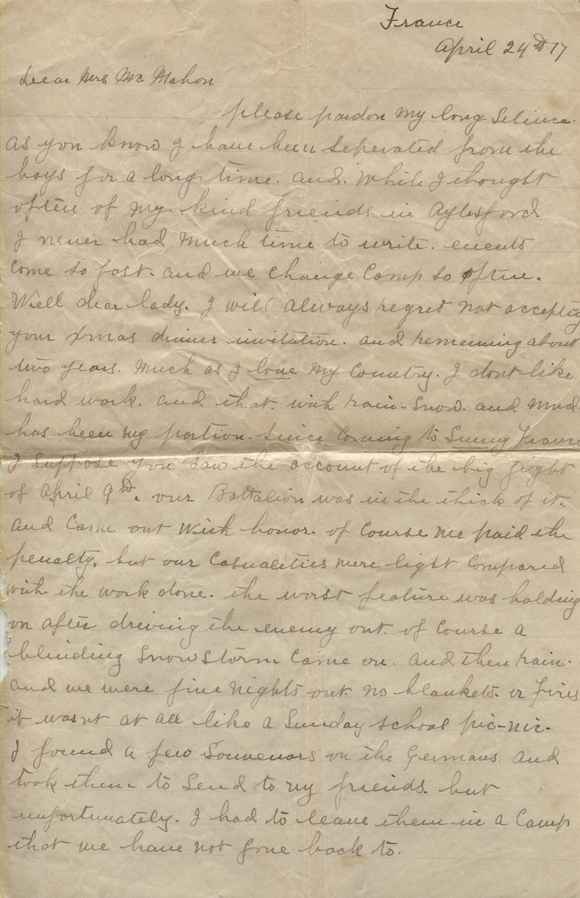 France
April 24th 17
Dear Mrs Mc Mahon
please pardon my long Silence.
as you know I have been seperated from the
boys for a long time. and. While I thought
often of my kind friends in Aylesford
I never had much time to write. events
come so fast. and we change Camp so often.
Well dear lady. I will always regret not accepting
your Xmas dinner invitation. and remaining about
two years. Much as I love my Country. I dont like
hard work. and that. with rain-snow. and mud
has been my portion. since coming to Sunny France
I suppose you saw the account of the big fight
of April 9th. our Battalion was in the thick of it.
and Came out with honor. of course we paid the
penalty. but our Casualities were light compared
with the work done. the worst feature was holding
on after driving the enemy out. of course a
blinding Snow Storm came on. and then rain.
and we were five nights out no blankets or fires
it wasnt at all like a Sunday school pic-nic.
I found a few Souvenors on the Germans and
took them to send to my friends. but
unfortunately. I had to leave them in a Camp
that we have not gone back to.